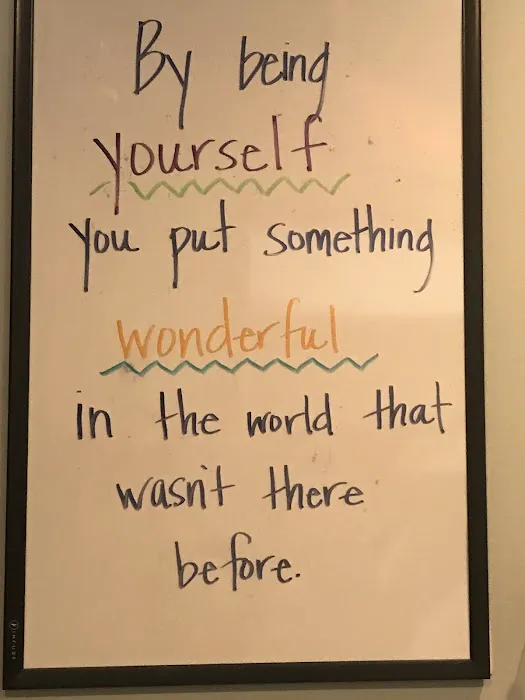 By being
yourself
you put something
wonderful
in the world that
wasn't there
before.